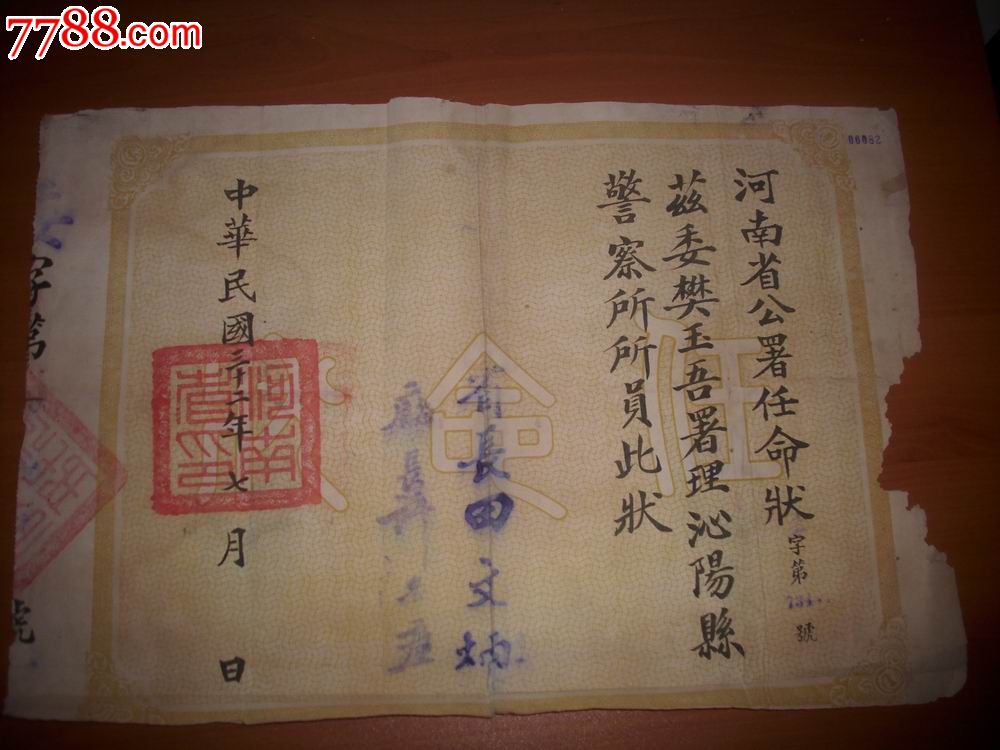 7788.com
00082
河南省公署任命狀
字第
號
茲委樊玉吾署理沁陽縣
警察所所員此狀
任命狀
省長田文炳
中華民國三十二年七月 日
河南省印
字第
號